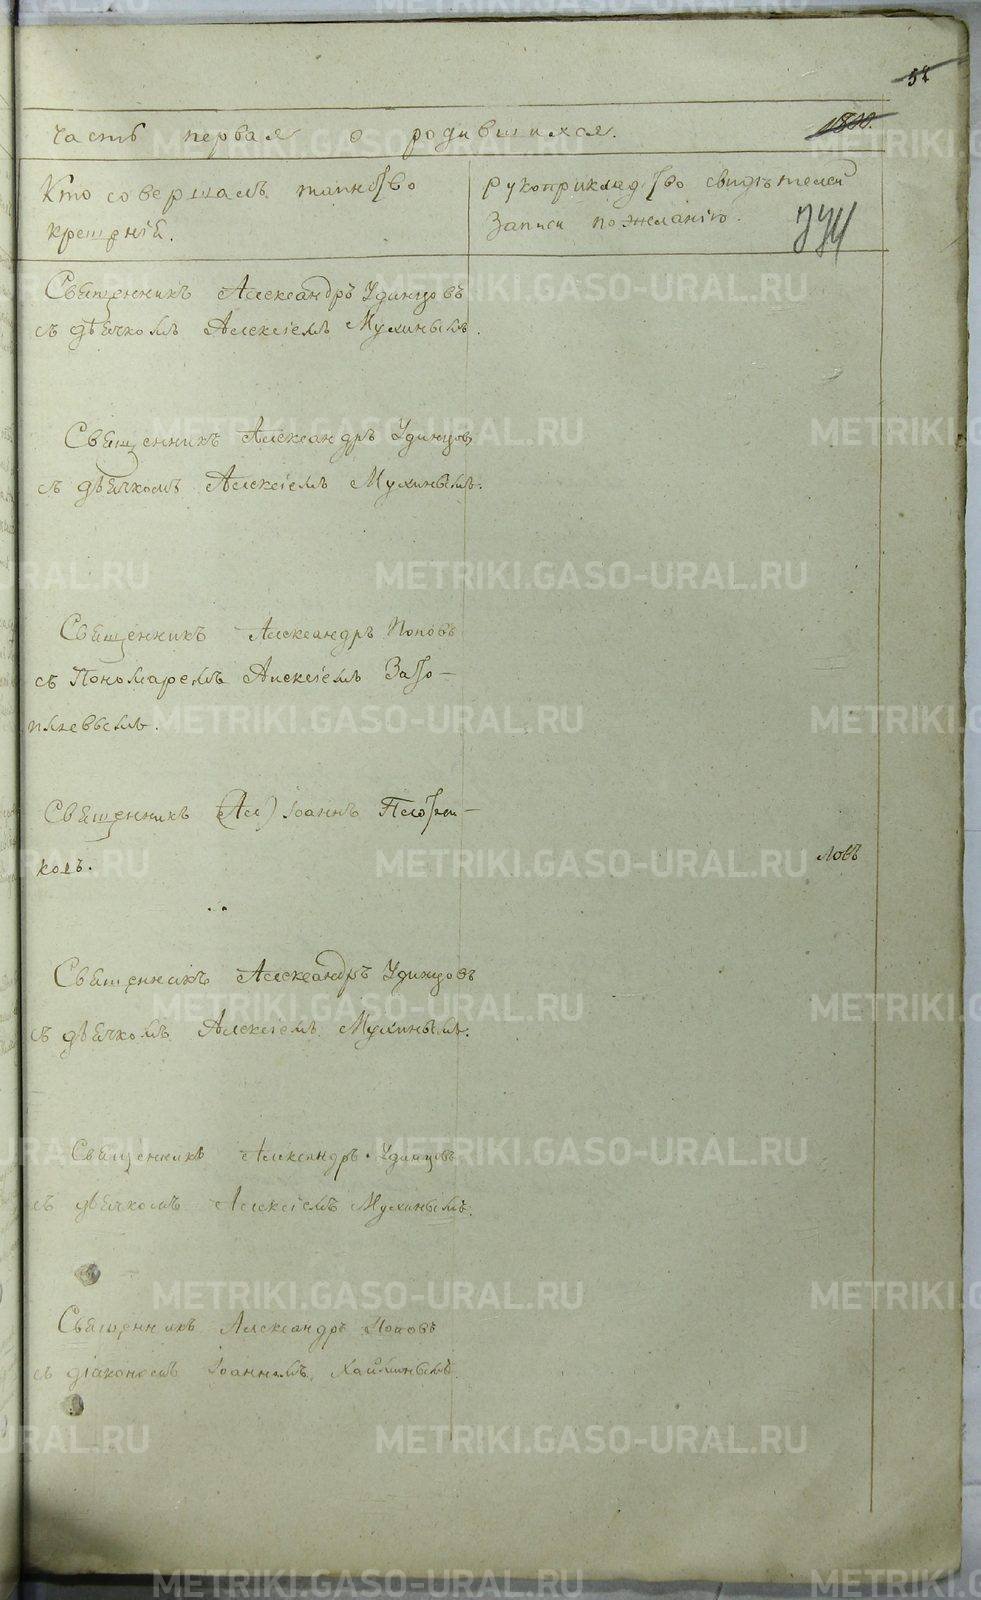 Часть первая о родившихся.
Кто совершалъ таинство
крещенія.
Рукоприкладство свидѣтелей
записи по желанію.
Священникъ Александръ Удинцовъ
съ дьячкомъ Алексіемъ Мухинымъ.
Священникъ Александръ Удинцовъ
съ дьячкомъ Алексіемъ Мухинымъ.
Священникъ Александръ Поповъ
съ Пономаремъ Алексіемъ
Священникъ (Ал) Іоаннъ
ловъ
Священникъ Александръ Удинцовъ
съ дьячкомъ Алексіемъ Мухинымъ.
Священникъ Александръ Удинцовъ
съ дьячкомъ Алексіемъ Мухинымъ.
Священникъ Александръ Поповъ
съ діакономъ Іоанномъ
METRIKI.GASO-URAL.RU